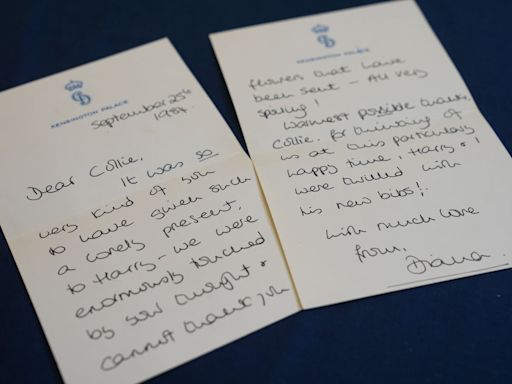 KENSINGTON PALACE
September 25th
1984
Dear Collie,
It was so
very kind of you
to have given such
a lovely present,
to Harry - we were
enormously touched
by your thought &
cannot thank you
KENSINGTON PALACE
flowers that have
been sent - All very
spoiling!
Warmest possible thanks,
Collie, for thinking of
us at this particularly
happy time, Harry & I
were thrilled with
his new bibs!.
With much love
from,
Diana